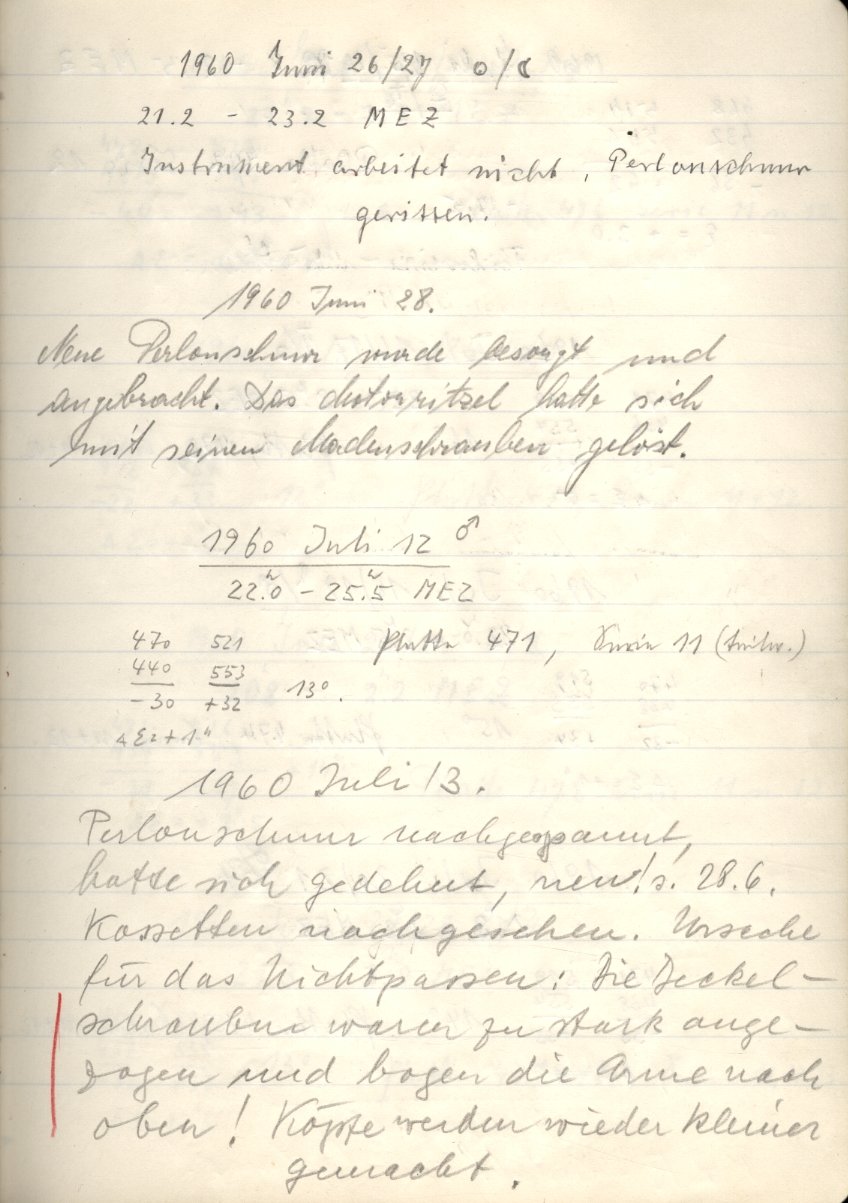 1960 Juni 26/27 ☉/☾
21.2 - 23.2 MEZ
Instrument arbeitet nicht, Perlonschnur
gerissen.
1960 Juni 28.
Neue Perlonschnur wurde besorgt und
angebracht. Das Motorritzel hatte sich
mit seinen Madenschrauben gelöst.
1960 Juli 12 ♂
22.ʰ0 - 25.ʰ5 MEZ
470 521 Platte 471, 11
440 553 13°.
-30 +32
1960 Juli 13.
Perlonschnur nachgespannt,
hatte sich gedehnt, neu! s. 28.6.
Kassetten nachgesehen. Ursache
für das Nichtpassen: Die Deckel-
schrauben waren zu stark ange-
zogen und bogen die Arme nach
oben! Köpfe werden wieder kleiner
gemacht.